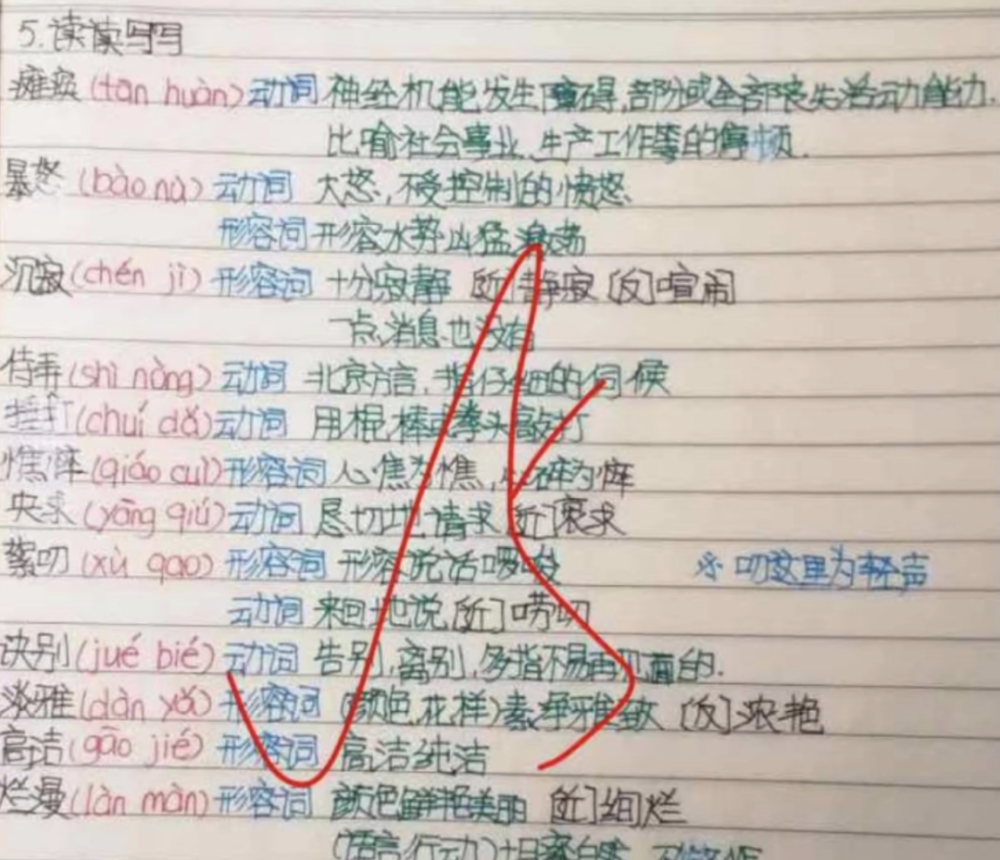 5.读读写写
瘫痪(tān huàn)动词 神经机能发生障碍,部份或全部丧失活动能力.
比喻社会事业,生产工作等的停顿.
暴怒(bào nù)动词 大怒,不受控制的愤怒.
形容词 形容水势凶猛激荡
沉寂(chén jì)形容词 十分寂静 [近]静寂 [反]喧闹
一点消息也没有
侍弄(shì nòng)动词 北京方言,指仔细的伺候
捶打(chuí dǎ)动词 用棍棒或拳头敲打
憔悴(qiáo cuì)形容词 心焦为憔,心碎为悴
央求(yāng qiú)动词 恳切地请求 [近]哀求
絮叨(xù dao)形容词 形容说话啰嗦 ※叨这里为轻声
动词 来回地说,[近]唠叨
诀别(jué bié)动词 告别,离别,多指不易再见面的.
淡雅(dàn yǎ)形容词 (颜色花样)素净雅致 [反]浓艳
高洁(gāo jié)形容词 高洁纯洁
烂漫(làn màn)形容词 颜色鲜艳美丽 [近]绚烂
(语言行动)坦率自然,不做作